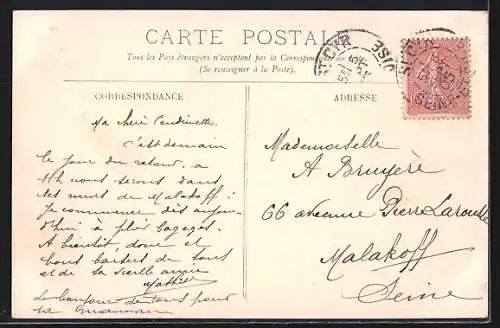 CARTE POSTALE
Tous les Pays étrangers n'acceptent pas la Correspondance au
(Se renseigner à la Poste).
CORRESPONDANCE
ADRESSE
ST CYR
OISE
Ma chère
C'est demain
le jour du retour. a
11h nous serons dans
les murs de Malakoff !
Je commence dès aujour-
d'hui à plier bagages.
A bientôt, donc et
bons baisers de tous
et de ta vieille amie
Mathilde
Le bonjour de tous pour
ta maman
Mademoiselle
A Bruyère
66 avenue Pierre Larousse
Malakoff
Seine